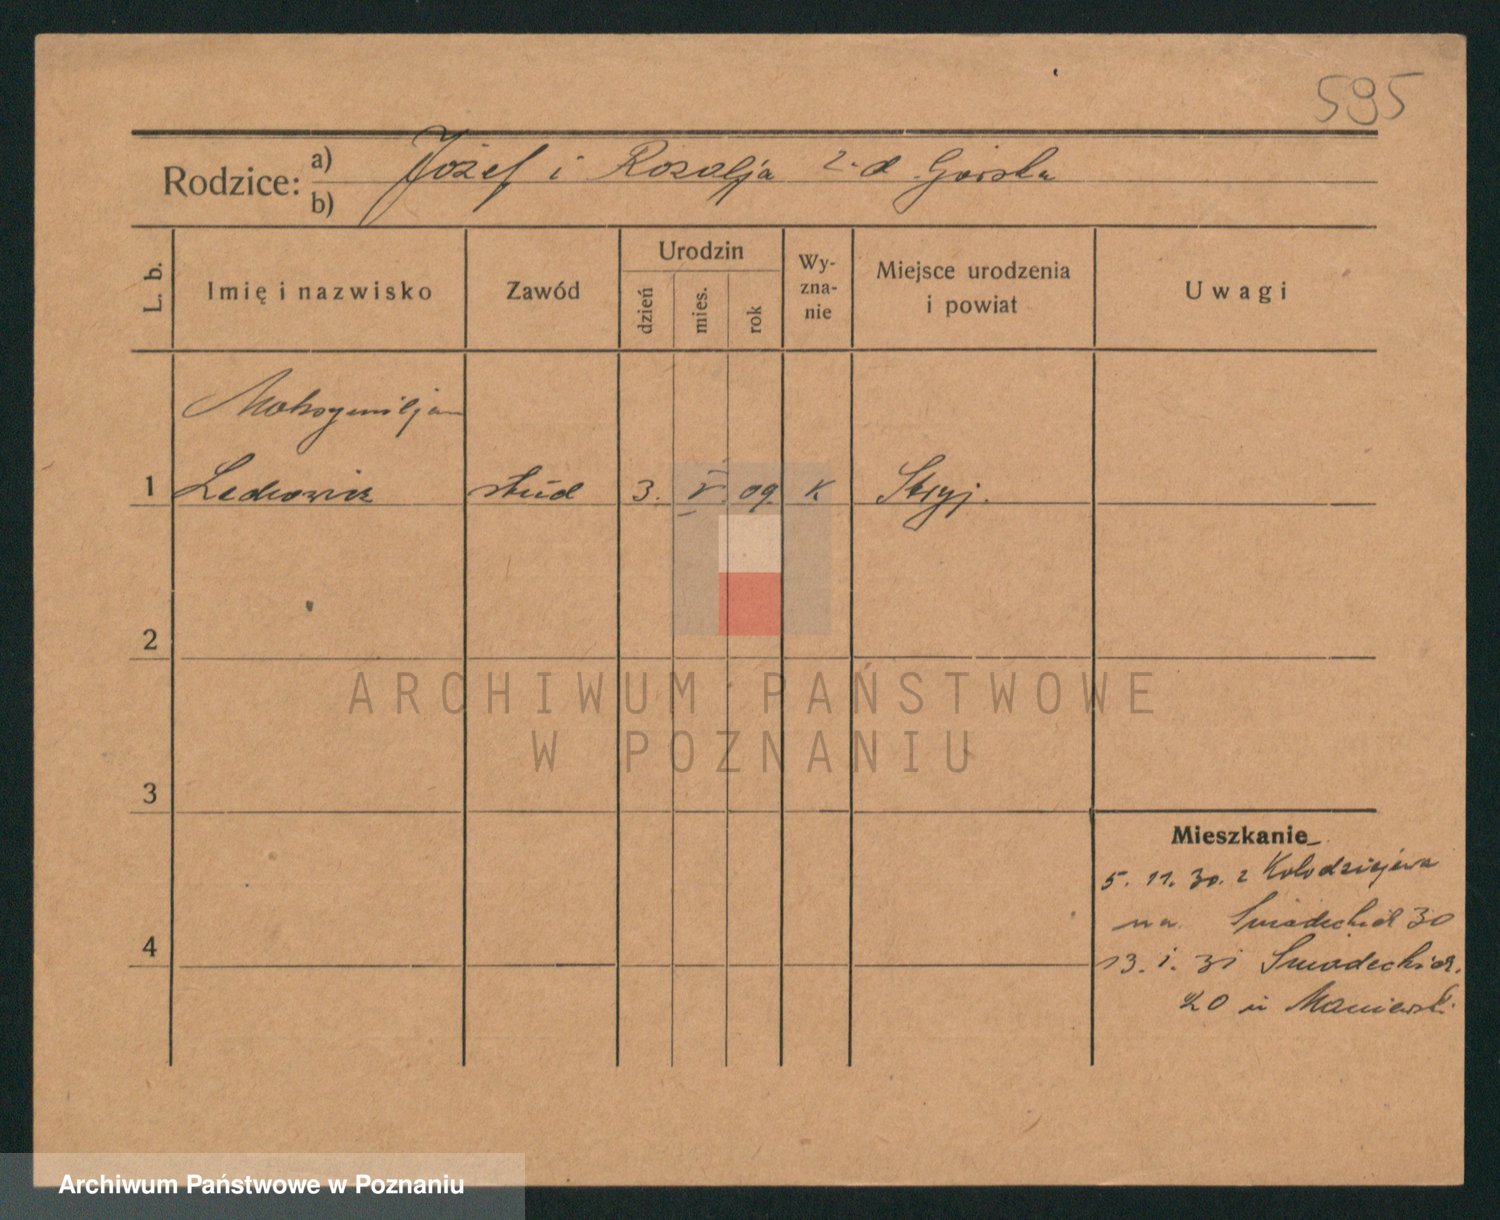 595
Rodzice: a) Józef i Rozalja z d. Górska
b)
L. b.
Imię i nazwisko
Zawód
Urodzin
dzień
mies.
rok
Wy-
zna-
nie
Miejsce urodzenia
i powiat
Uwagi
Maksymiljan
1 stud 3. V 09. k. Stryj.
2
3
4
Mieszkanie
5. 11. 30. z Kołodziejewa
na Śniadeckich 30
13. I. 31 Śniadeckich
20 u
ARCHIWUM PAŃSTWOWE
W POZNANIU
Archiwum Państwowe w Poznaniu